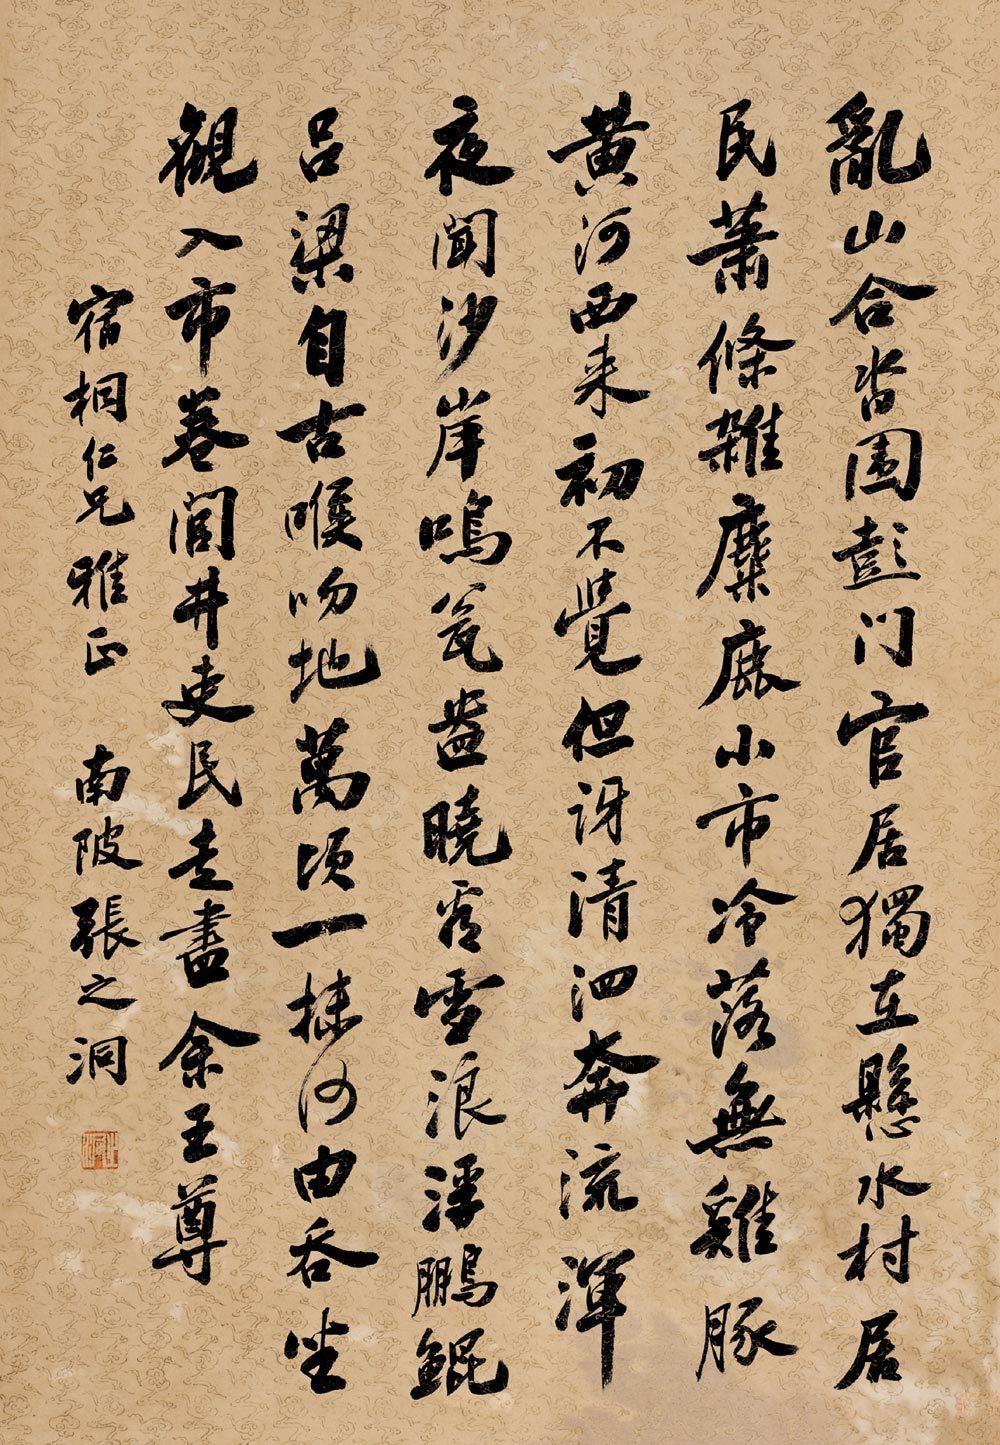 亂山合沓圍彭门官居獨在懸水村居
民蕭條雜麋鹿小市冷落無雞豚
黃河西来初不覺但訝清泗奔流渾
夜聞沙岸鳴瓮盎曉看雪浪浮鵬鯤
呂梁自古喉吻地萬頃一抹何由吞坐
觀入市卷閭井吏民走盡余王尊
宿桐仁兄雅正 南陂張之洞